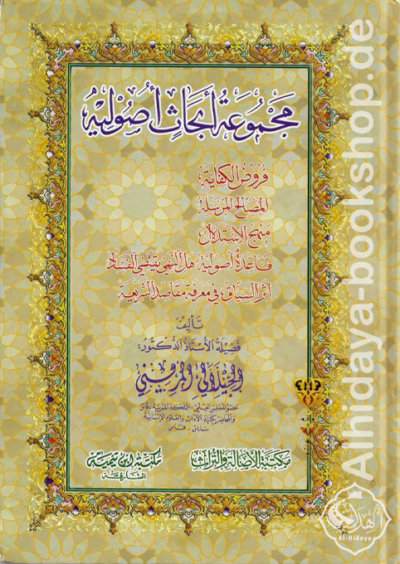 مجموعة أبحاث أصولية
فروض الكفاية
المصالح المرسلة
منهج الاستدلال
قاعدة أصولية: هل النهي يقتضي الفساد
أثر السياق في معرفة مقاصد الشريعة
تأليف
فضيلة الأستاذ الدكتور:
الجيلالي المريني
مكتبة الأصالة والتراث
مكتبة ابن تيمية
الشارقة
Alhidaya-bookshop.de
Al-Hidaya